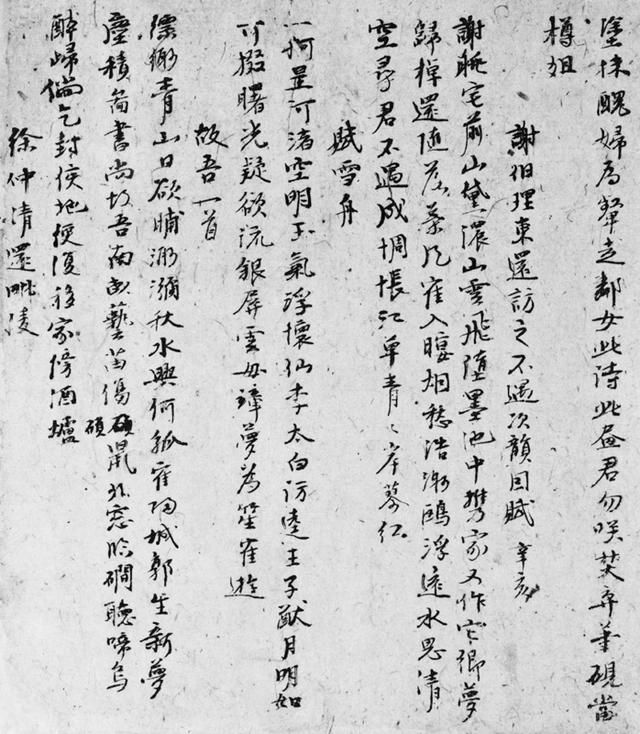 塗抹醜婦為顰走鄰女此詩此昼君勿咲焚弃筆硯當
樽俎
謝伯理東還訪之不遇次韻因賦 辛亥
謝眺宅前山黛濃山雲飛墮墨池中携家又作它鄉夢
歸棹還隨落葉風雀入暝烟愁浩渺鷗浮遠水思清
空尋君不遇成惆悵江草青々岸蓼紅
賦雪舟
一舸星河渚空明玉氣浮懷仙李太白訪逵王子猷月明如
可掇曙光疑欲流銀屏雲母障夢為笙雀遊
故吾一首
縹緲青山日欲晡瀰瀰秋水興何孤雀歸城郭生新夢
塵積圖書尚故吾南畝藝苗傷碩鼠北窓臨磵聽啼烏
碩
醉歸倘乞封侯地便復移家傍酒壚
徐仲清還毗陵